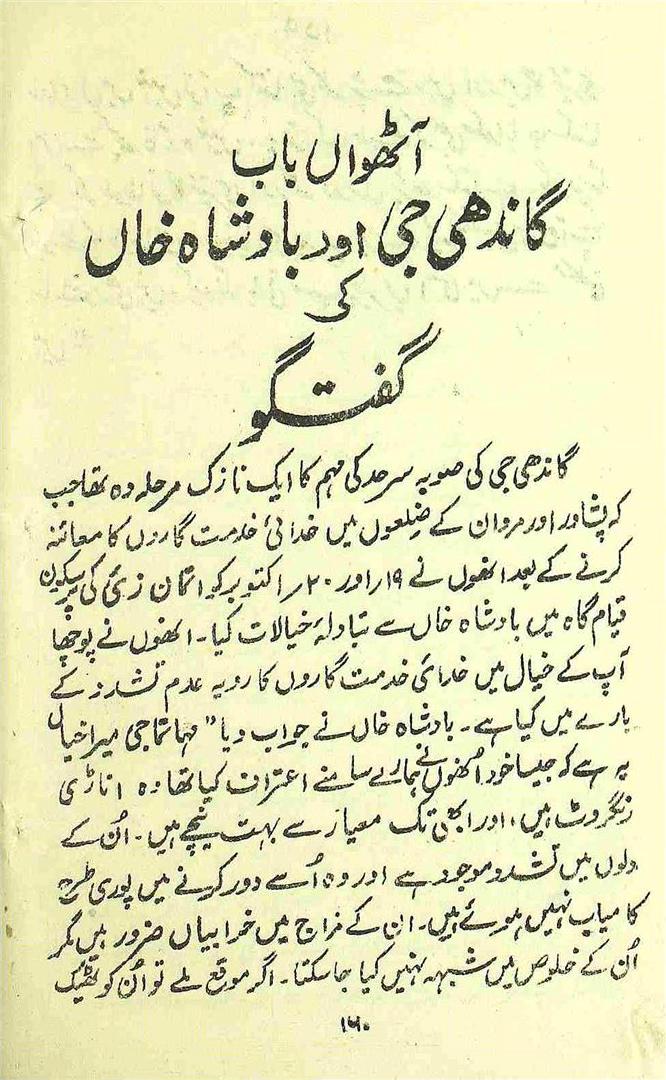 آٹھواں باب
گاندھی جی اور بادشاہ خاں
کی
گفتگو
گاندھی جی کی صوبہ سرحد کی مہم کا ایک نازک مرحلہ وہ تھا جب
کہ پشاور اور مروان کے ضلعوں میں خدائی خدمت گاروں کا معائنہ
کرنے کے بعد انھوں نے ۱۹ر اور ۲۰ر اکتوبر کو اتمان زئی کی پرسکون
قیام گاہ میں بادشاہ خاں سے تبادلۂ خیالات کیا۔ انھوں نے پوچھا
آپ کے خیال میں خدائی خدمت گاروں کا رویہ عدم تشدد کے
بارے میں کیا ہے۔ بادشاہ خاں نے جواب دیا "مہاتما جی میرا خیال
یہ ہے کہ جیسا خود اُنھوں نے ہمارے سامنے اعتراف کیا تھا وہ اناڑی
رنگروٹ ہیں، اور ابھی تک معیار سے بہت نیچے ہیں۔ اُن کے
دلوں میں تشدد موجود ہے اور وہ اُسے دور کرنے میں پوری طرح
کامیاب نہیں ہوئے ہیں۔ ان کے مزاج میں خرابیاں ضرور ہیں مگر
اُن کے خلوص میں شبہہ نہیں کیا جا سکتا۔ اگر موقع ملے تو اُن کو ٹھیک
۱۶۰